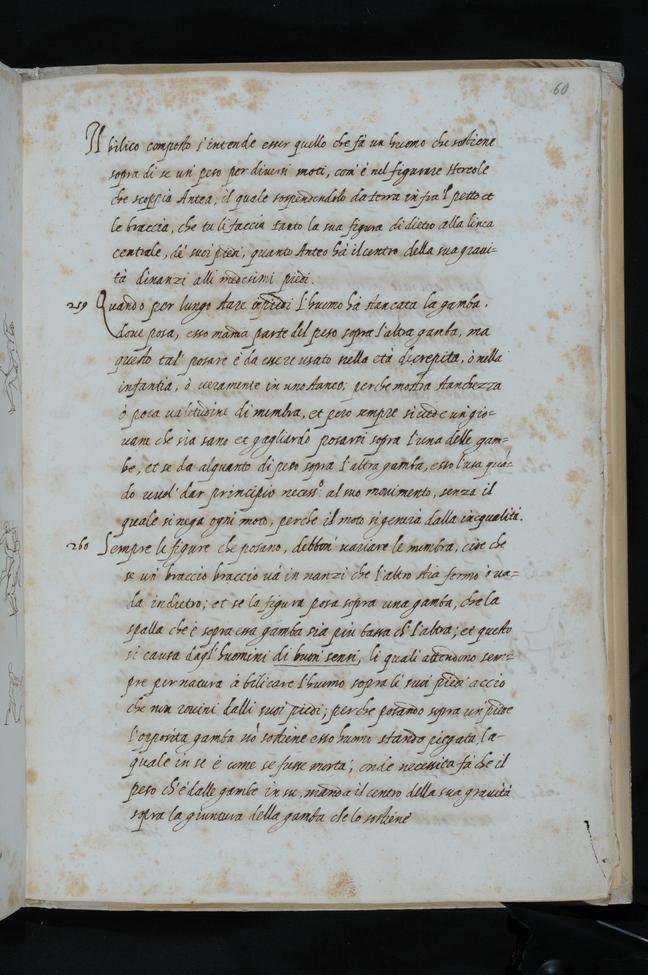 60
Il bilico composto s'intende esser quello che fà un huomo che sostiene
sopra di se un' peso per diversi moti, com'è nel figurare Hercole
che scoppia Antea, il quale sospendendolo da terra infra 'l petto et
le braccia, che tu li faccia tanto la sua figura di dietro alla linea
centrale, de' suoi piedi, quanto Anteo hà il centro della sua gravi-
tà dinanzi alli medesimi piedi.
259 Quando per lungo stare in piedi l'huomo hà stancata la gamba,
dove posa, esso manda parte del peso sopra l'altra gamba, ma
questo tal' posare è da essere usato nella età decrepita, ò nella
infantia, ò veramente in uno stanco; perche mostra stanchezza
ò poca valitudine di membra, et però sempre si vede un' gio-
vane che sia sano et gagliardo posarsi sopra l'una delle gam-
be, et se da alquanto di peso sopra l'altra gamba, esso l'usa quā-
do vuol' dar principio necess.º al suo movimento, senza il
quale si nega ogni moto, perche il moto si genera dalla inequalità.
260 Sempre le figure che posano, debbon' variare le membra, cioe che
se un' braccio braccio và in nanzi che l'altro stia fermo ò va-
da indietro; et se la figura posa sopra una gamba, che la
spalla che è sopra essa gamba sia più bassa ch' l'altra; et questo
si causa dagl' huomini di buon' sensi, li quali attendono sem-
pre per natura à bilicare l'huomo sopra li suoi piedi accio
che non rovini dalli suoi piedi; perche posando sopra un' piede
l'opposita gamba nō sostiene esso huomo stando piegata, la
quale in se è come se fusse morta; onde necessita fà che il
peso ch'è dalle gambe in su, manda il centro della sua gravità
sopra la giuntura della gamba che lo sostiene